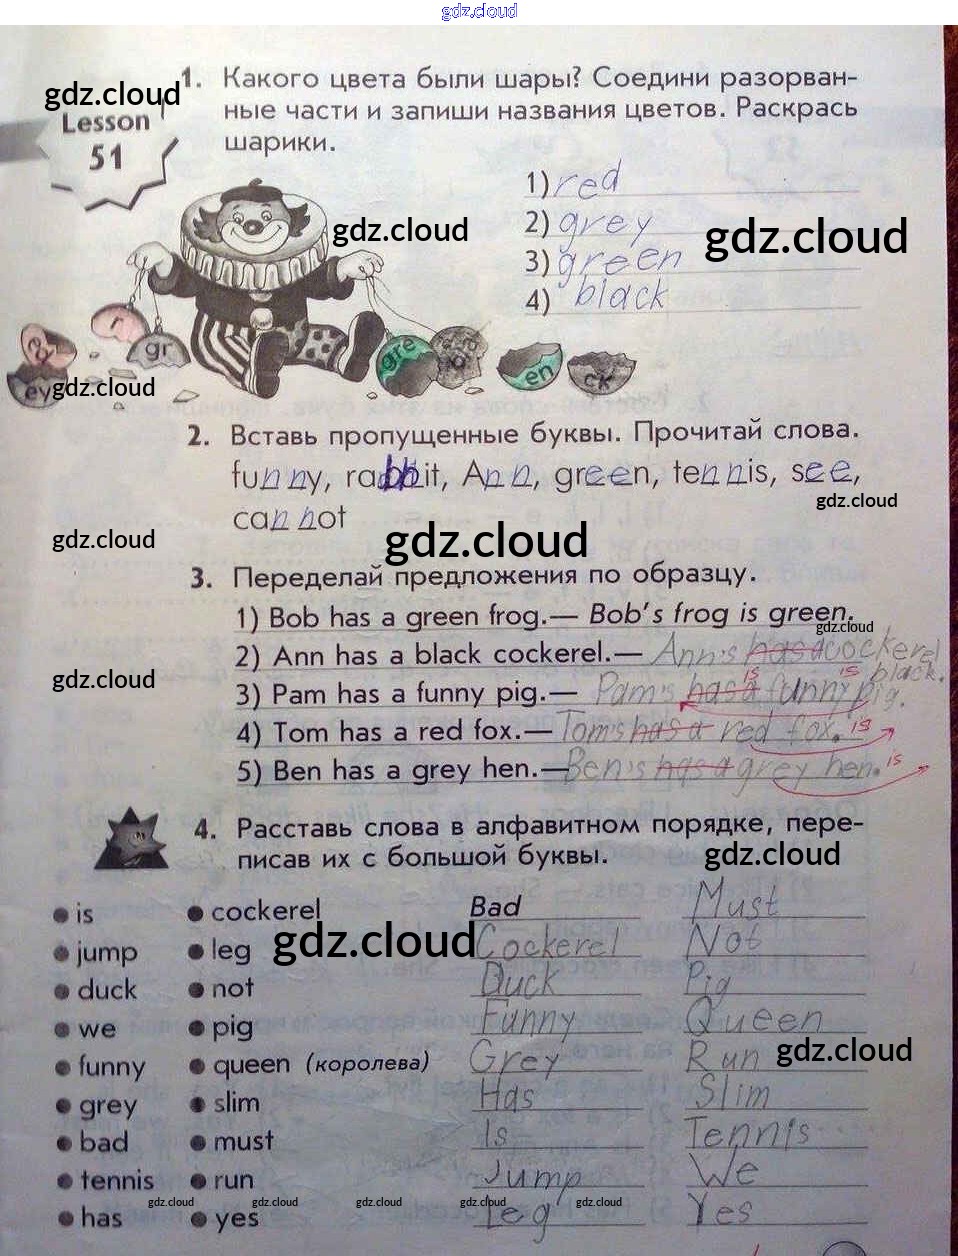 gdz.cloud
1. Какого цвета были шары? Соедини разорван-
gdz.cloud
ные части и запиши названия цветов. Раскрась
Lesson
51
шарики.
1) red
2) grey
gdz.cloud
gdz.cloud
3) green
4) black
r
gr
gre
ed
ey
en
ck
gdz.cloud
2. Вставь пропущенные буквы. Прочитай слова.
funny, rabbit, Ann, green, tennis, see,
gdz.cloud
cannot
gdz.cloud
gdz.cloud
3. Переделай предложения по образцу.
1) Bob has a green frog.— Bob's frog is green.
gdz.cloud
2) Ann has a black cockerel.— Ann's has a cockerel
is black.
gdz.cloud
3) Pam has a funny pig.— Pam's has a funny pig.
is
4) Tom has a red fox.— Tom's has a red fox. is
5) Ben has a grey hen.— Ben's has a grey hen. is
4. Расставь слова в алфавитном порядке, пере-
писав их с большой буквы.
gdz.cloud
is cockerel Bad Must
jump leg Cockerel Not
gdz.cloud
duck not Duck Pig
we pig Funny Queen
funny queen (королева) Grey Run
gdz.cloud
grey slim Has Slim
bad must Is Tennis
tennis run Jump We
gdz.cloud gdz.cloud gdz.cloud gdz.cloud
has yes Leg Yes